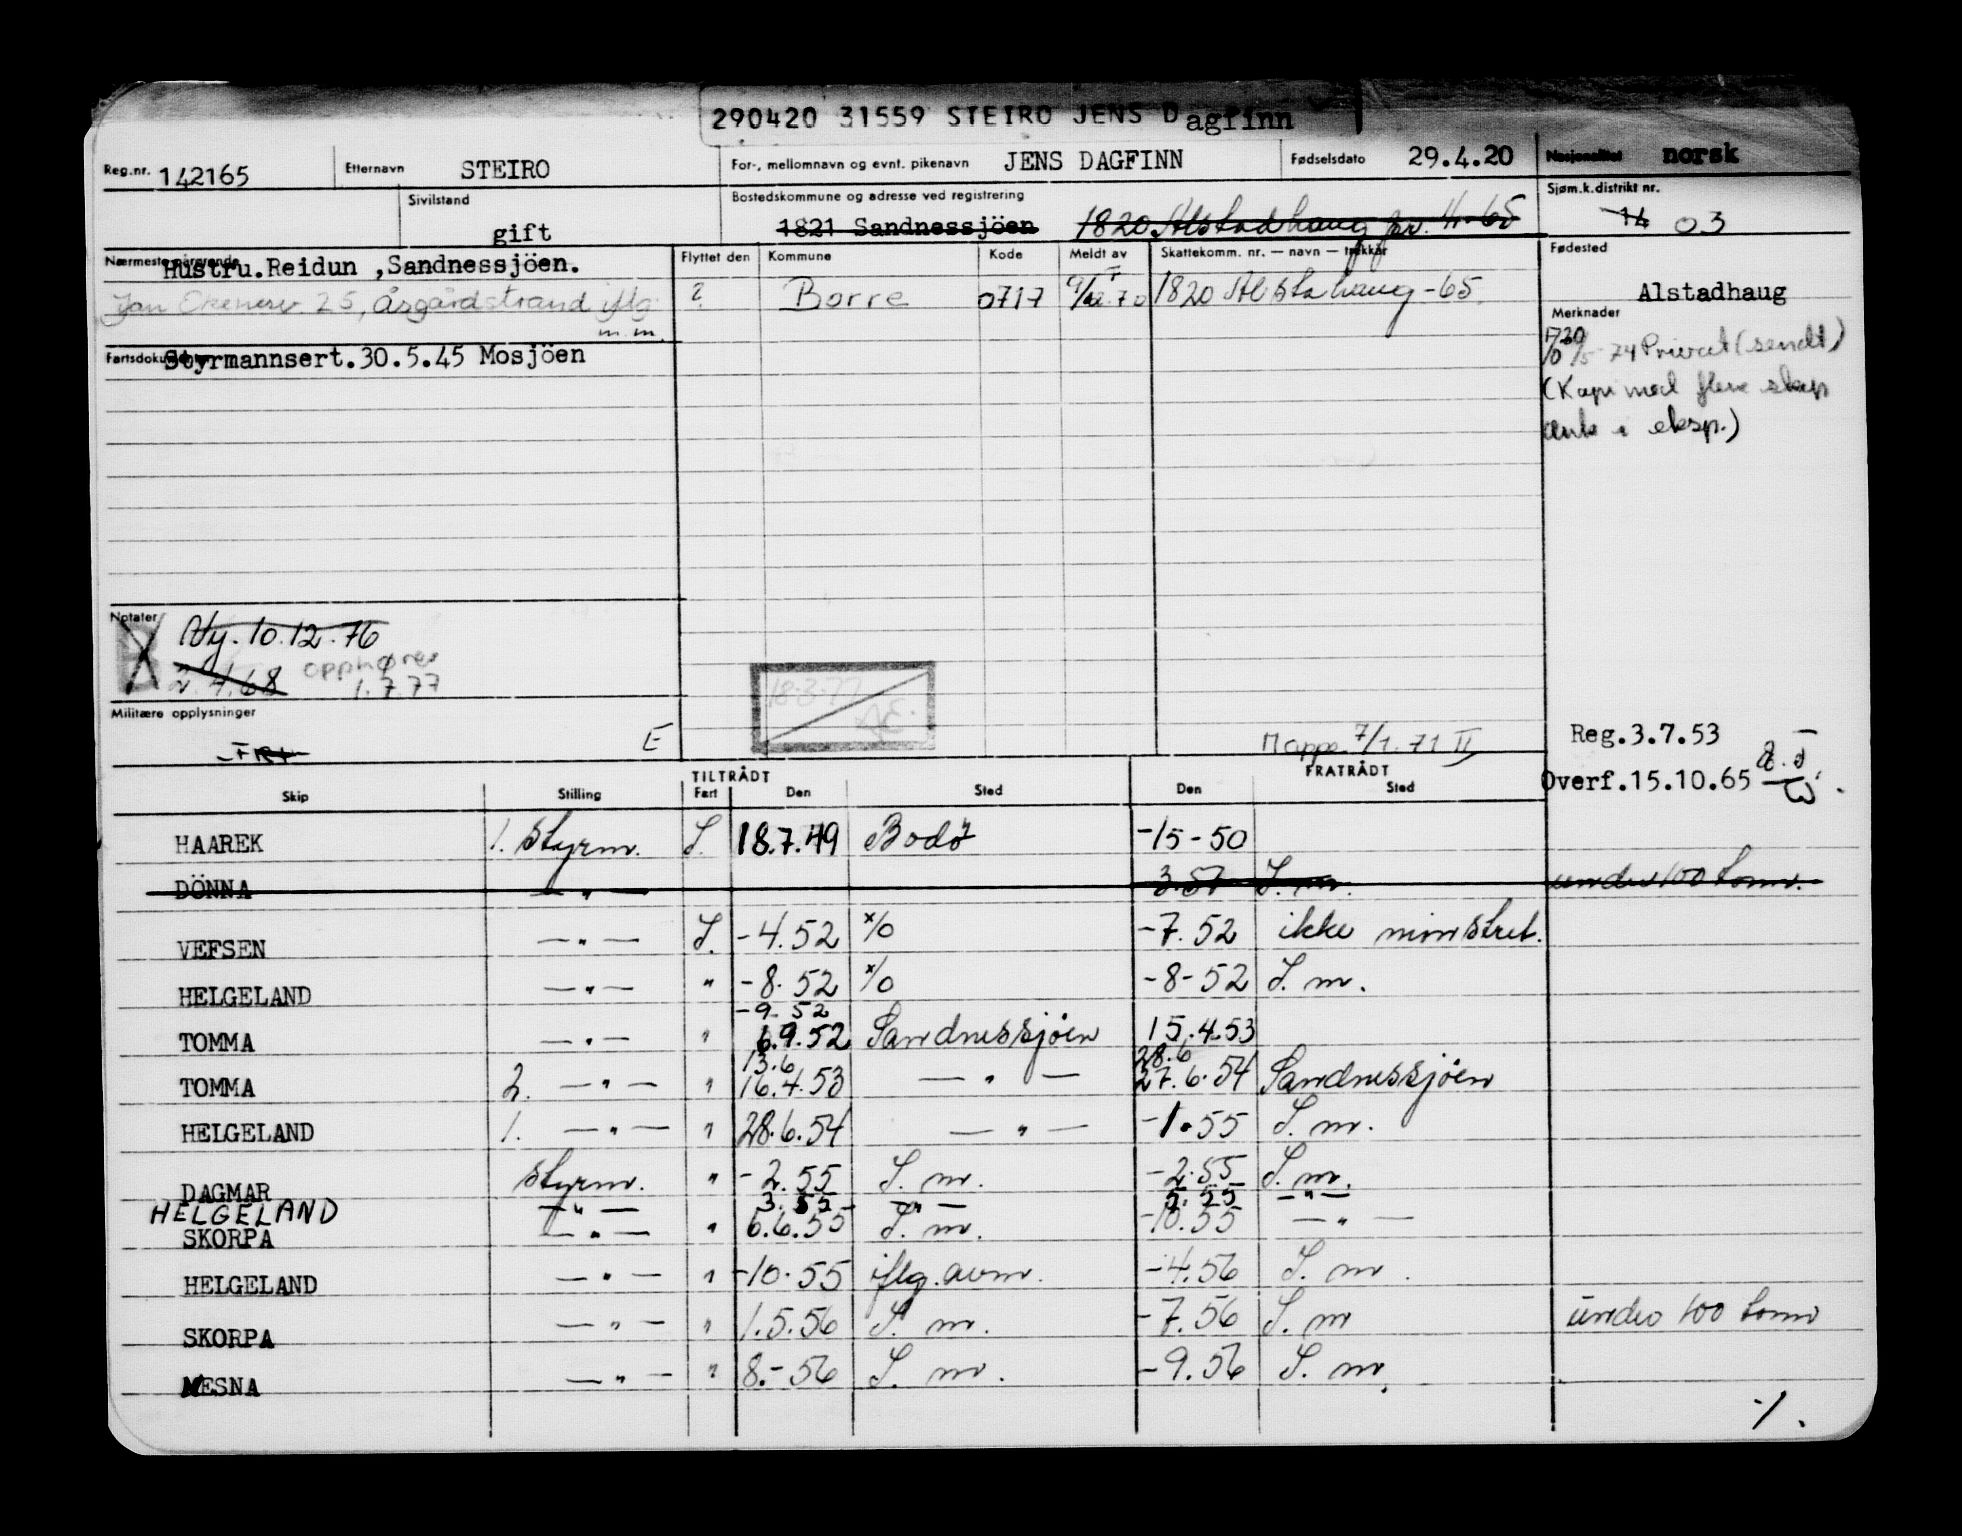 290420 31559 STEIRO JENS Dagfinn
Reg.nr. 142165 Etternavn STEIRO For-, mellomnavn og evnt. pikenavn JENS DAGFINN Fødselsdato 29.4.20 Nasjonalitet norsk
Sivilstand gift Bostedskommune og adresse ved registrering 1821 Sandnessjöen 1820 Alstadhaug pr. 4-65 Sjøm.k.distrikt nr. 14 03
Nærmeste pårørende Hustru.Reidun ,Sandnessjöen. Flyttet den Kommune Kode Meldt av Skattekomm. nr. — navn — trekkår Fødested
25, Åsgårdstrand iflg. ? Borre 0717 1820 Alstahaug -65 Alstadhaug
m.m.
Fartsdokumenter Styrmannsert.30.5.45 Mosjöen
Merknader
74 Privat (sendt)
(Kopi med flere skip
i eksp.)
Notater
Ny. 10.12.76
2.4.68 opphører
1.7.77
18.3.77
Militære opplysninger
E
Mappe 7/1.71 II
Reg.3.7.53
Overf.15.10.65
TILTRÅDT FRATRÅDT
Skip Stilling Fart Den Sted Den Sted
HAAREK 1. styrm. I. 18.7.49 Bodø -15-50
DÖNNA — " — 3.51 I. m. under 100 tonn.
VEFSEN — " — I. -4.52 x/o -7.52 ikke mønstret.
HELGELAND — " — " -8.52 x/o -8-52 I. m.
-9.52
TOMMA — " — " 6.9.52 Sandnessjöen 15.4.53
13.6 28.6
TOMMA 2. — " — " 16.4.53 — " — 27.6.54 Sandnessjöen
HELGELAND 1. — " — " 28.6.54 — " — -1.55 I. m.
DAGMAR styrm. " -2.55 I. m. -2.55 I. m.
HELGELAND — " — 3.55 — " — 5.55 — " —
SKORPA — " — " 6.6.55 I. m. -10.55 — " —
HELGELAND — " — " -10.55 iflg. avm. -4.56 I. m.
SKORPA — " — " 1.5.56 I. m. -7.56 I. m under 100 tonn
MESNA — " — " 8.-56 I. m. -9.56 I. m.
·/.